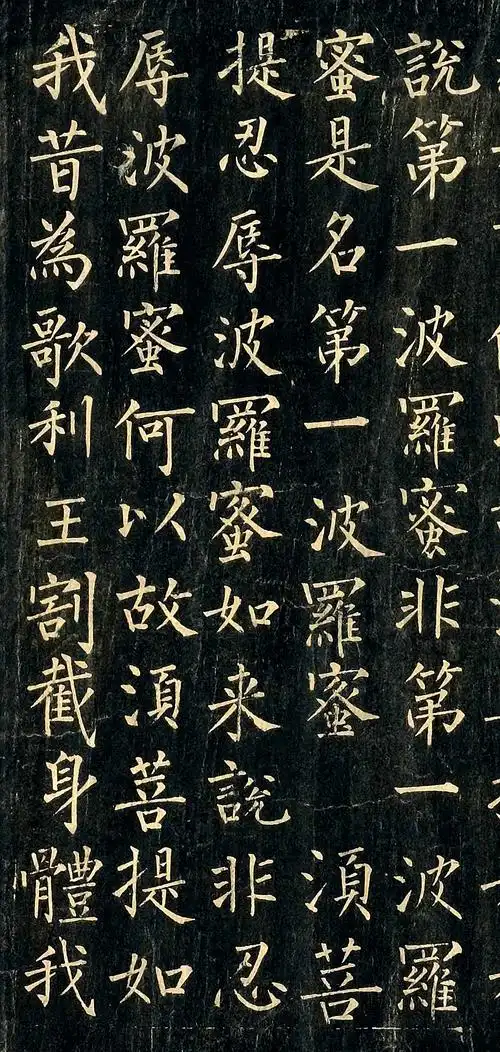 說第一波羅蜜非第一波羅
蜜是名第一波羅蜜 須菩
提忍辱波羅蜜如来說非忍
辱波羅蜜何以故須菩提如
我昔為歌利王割截身體我